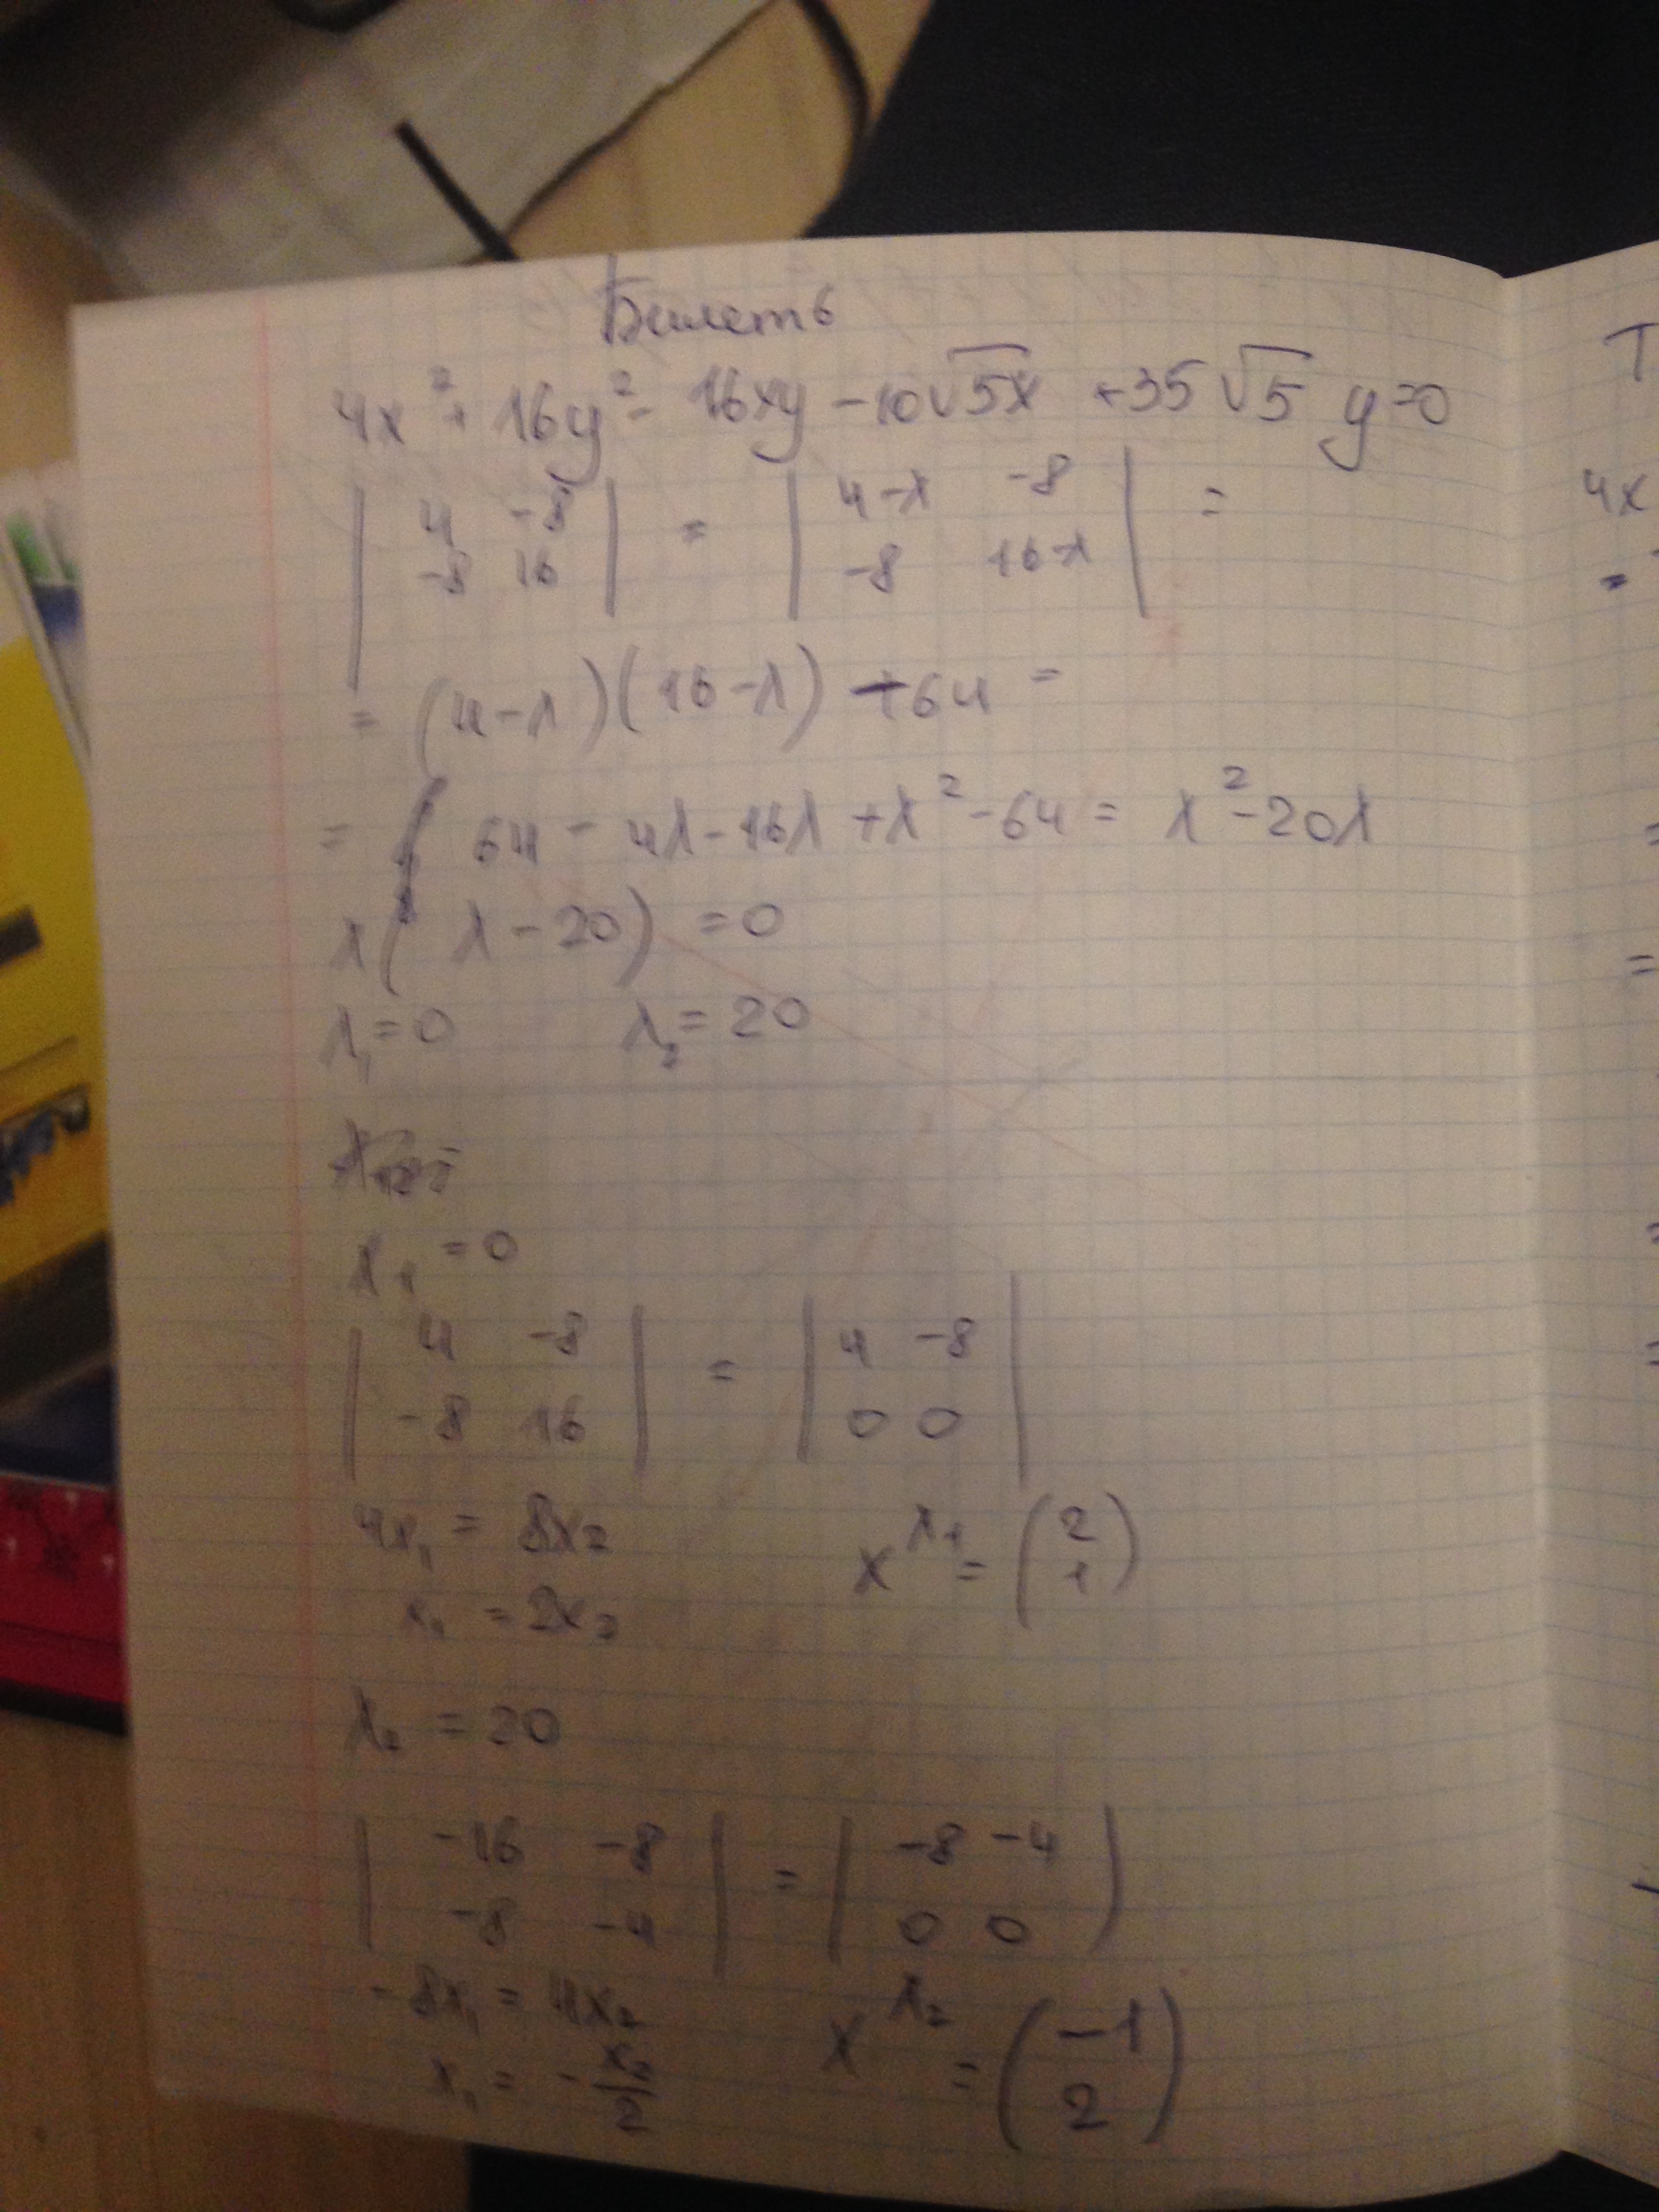 Билет 6
4x² + 16y² - 16xy - 10√5x + 35√5 y = 0
| 4 -8 | = | 4-λ -8 | =
| -8 16 | | -8 16-λ |
= (4-λ)(16-λ) - 64 =
= 64 - 4λ - 16λ + λ² - 64 = λ² - 20λ
λ(λ - 20) = 0
λ₁ = 0 λ₂ = 20
λ₁ = 0
| 4 -8 | = | 4 -8 |
| -8 16 | | 0 0 |
4x₁ = 8x₂ x^λ₁ = (2 1)
x₁ = 2x₂
λ₂ = 20
| -16 -8 | = | -8 -4 |
| -8 -4 | | 0 0 |
-8x₁ = 4x₂ x^λ₂ = (-1 2)
x₁ = -x₂/2
4x
=
=
=
=